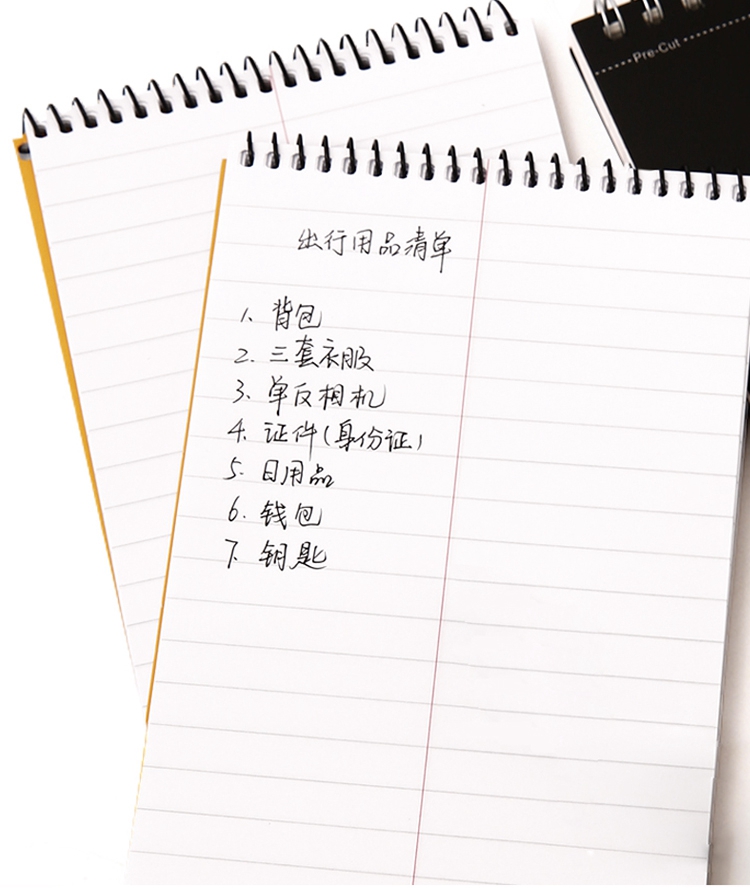 Pre-Cut
出行用品清单
1. 背包
2. 三套衣服
3. 单反相机
4. 证件(身份证)
5. 日用品
6. 钱包
7. 钥匙